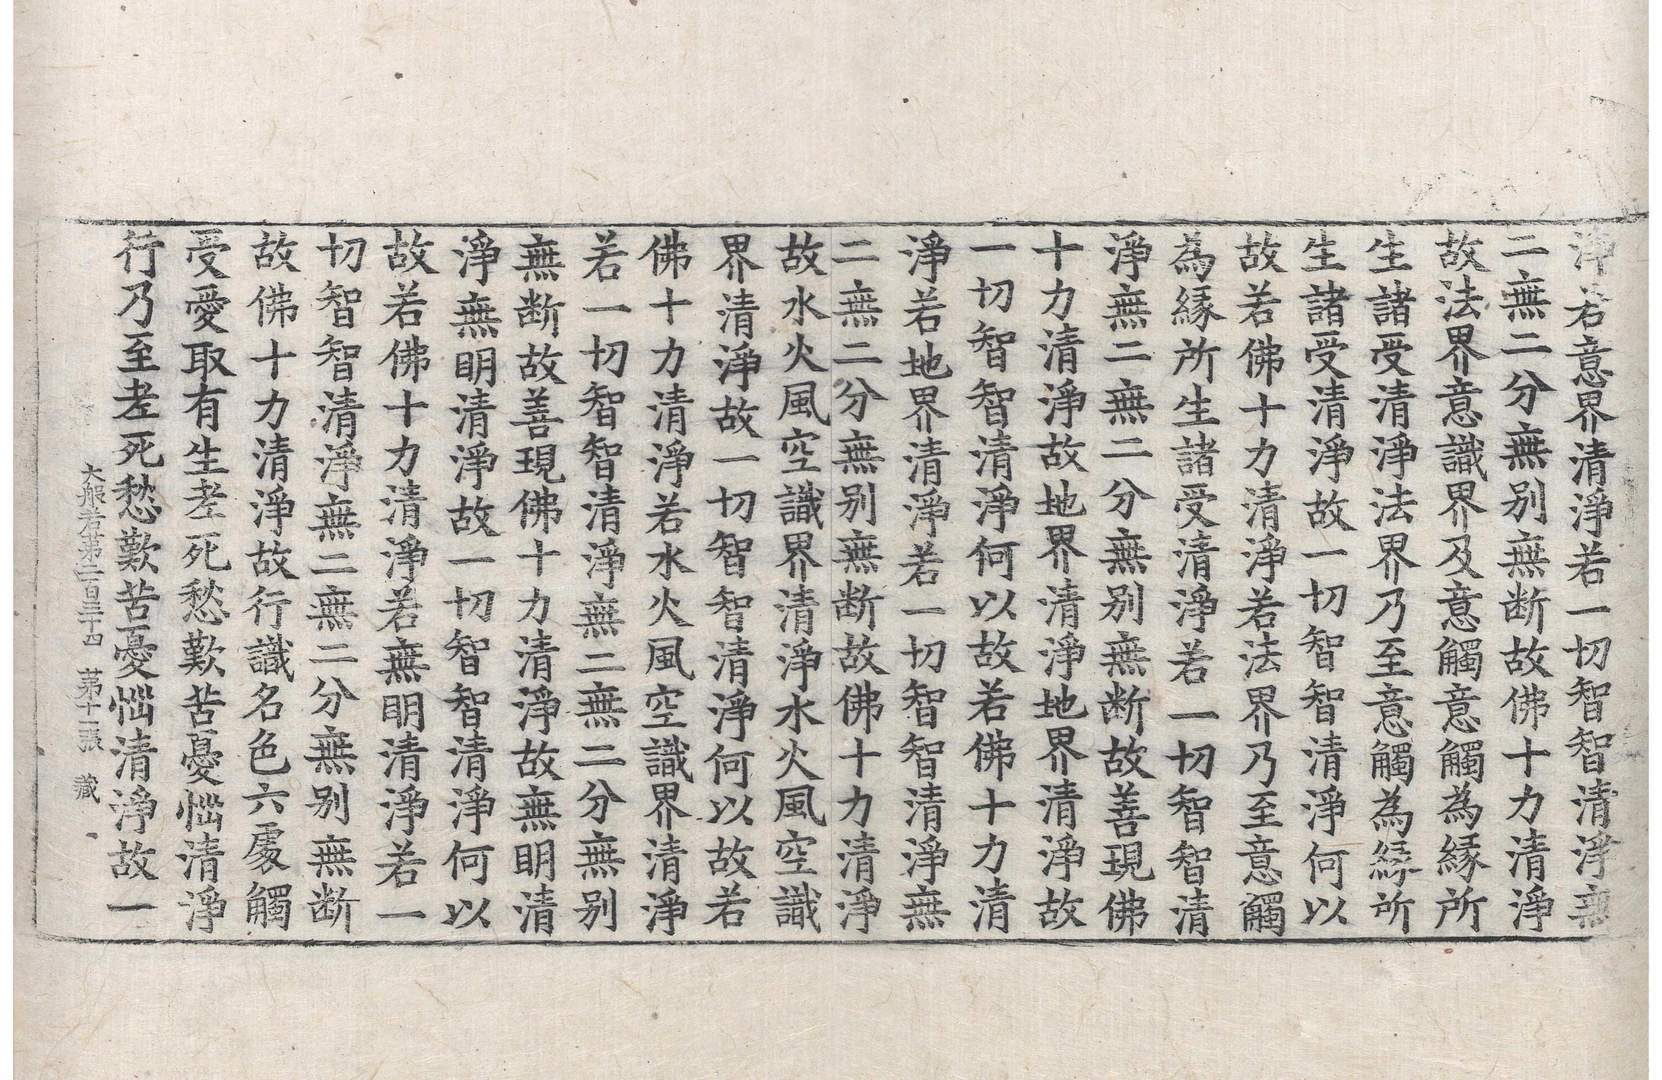 淨若意界清淨若一切智智清淨無
二無二分無別無斷故佛十力清淨
故法界意識界及意觸意觸為緣所
生諸受清淨法界乃至意觸為緣所
生諸受清淨故一切智智清淨何以
故若佛十力清淨若法界乃至意觸
為緣所生諸受清淨若一切智智清
淨無二無二分無別無斷故善現佛
十力清淨故地界清淨地界清淨故
一切智智清淨何以故若佛十力清
淨若地界清淨若一切智智清淨無
二無二分無別無斷故佛十力清淨
故水火風空識界清淨水火風空識
界清淨故一切智智清淨何以故若
佛十力清淨若水火風空識界清淨
若一切智智清淨無二無二分無別
無断故善現佛十力清淨故無明清
淨無明清淨故一切智智清淨何以
故若佛十力清淨若無明清淨若一
切智智清淨無二無二分無別無断
故佛十力清淨故行識名色六處觸
受愛取有生老死愁歎苦憂惱清淨
行乃至老死愁歎苦憂惱清淨故一
大般若第二百三十四 第十一張 藏